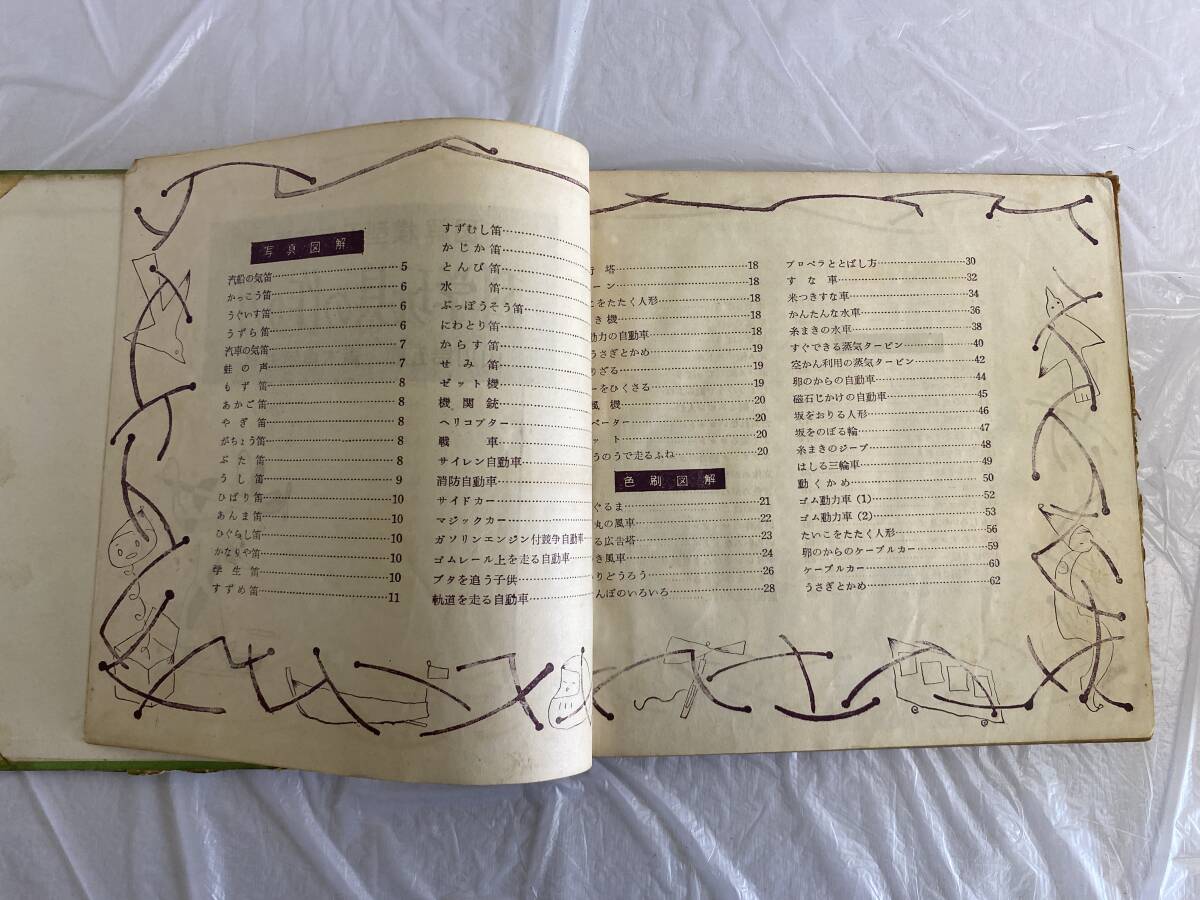 写真図解
汽船の気笛……5
かっこう笛……6
うぐいす笛……6
うずら笛……6
汽車の気笛……7
蛙の声……7
もず笛……8
あかご笛……8
やぎ笛……8
がちょう笛……8
ぶた笛……8
うし笛……9
ひばり笛……10
あんま笛……10
ひぐらし笛……10
かなりや笛……10
学生笛……10
すずめ笛……11
すずむし笛……
かじか笛……
とんび笛……
水笛……
ぶっぽうそう笛……
にわとり笛……
からす笛……
せみ笛……
ゼット機……
機関銃……
ヘリコプター……
戦車……
サイレン自動車……
消防自動車……
サイドカー……
マジックカー……
ガソリンエンジン付競争自動車……
ゴムレール上を走る自動車……
ブタを追う子供……
軌道を走る自動車……
塔……18
ーン……18
をたたく人形……18
き機……18
動力の自動車……18
うさぎとかめ……19
りざる……19
ーをひくさる……19
風機……20
ベーター……20
ット……20
うのうで走るふね……20
色刷図解
ぐるま……21
丸の風車……22
る広告塔……23
き風車……24
りどうろう……26
んぼのいろいろ……28
プロペラととばし方……30
すな車……32
米つきすな車……34
かんたんな水車……36
糸まきの水車……38
すぐできる蒸気タービン……40
空かん利用の蒸気タービン……42
卵のからの自動車……44
磁石じかけの自動車……45
坂をおりる人形……46
坂をのぼる輪……47
糸まきのジープ……48
はしる三輪車……49
動くかめ……50
ゴム動力車(1)……52
ゴム動力車(2)……53
たいこをたたく人形……56
卵のからのケーブルカー……59
ケーブルカー……60
うさぎとかめ……62